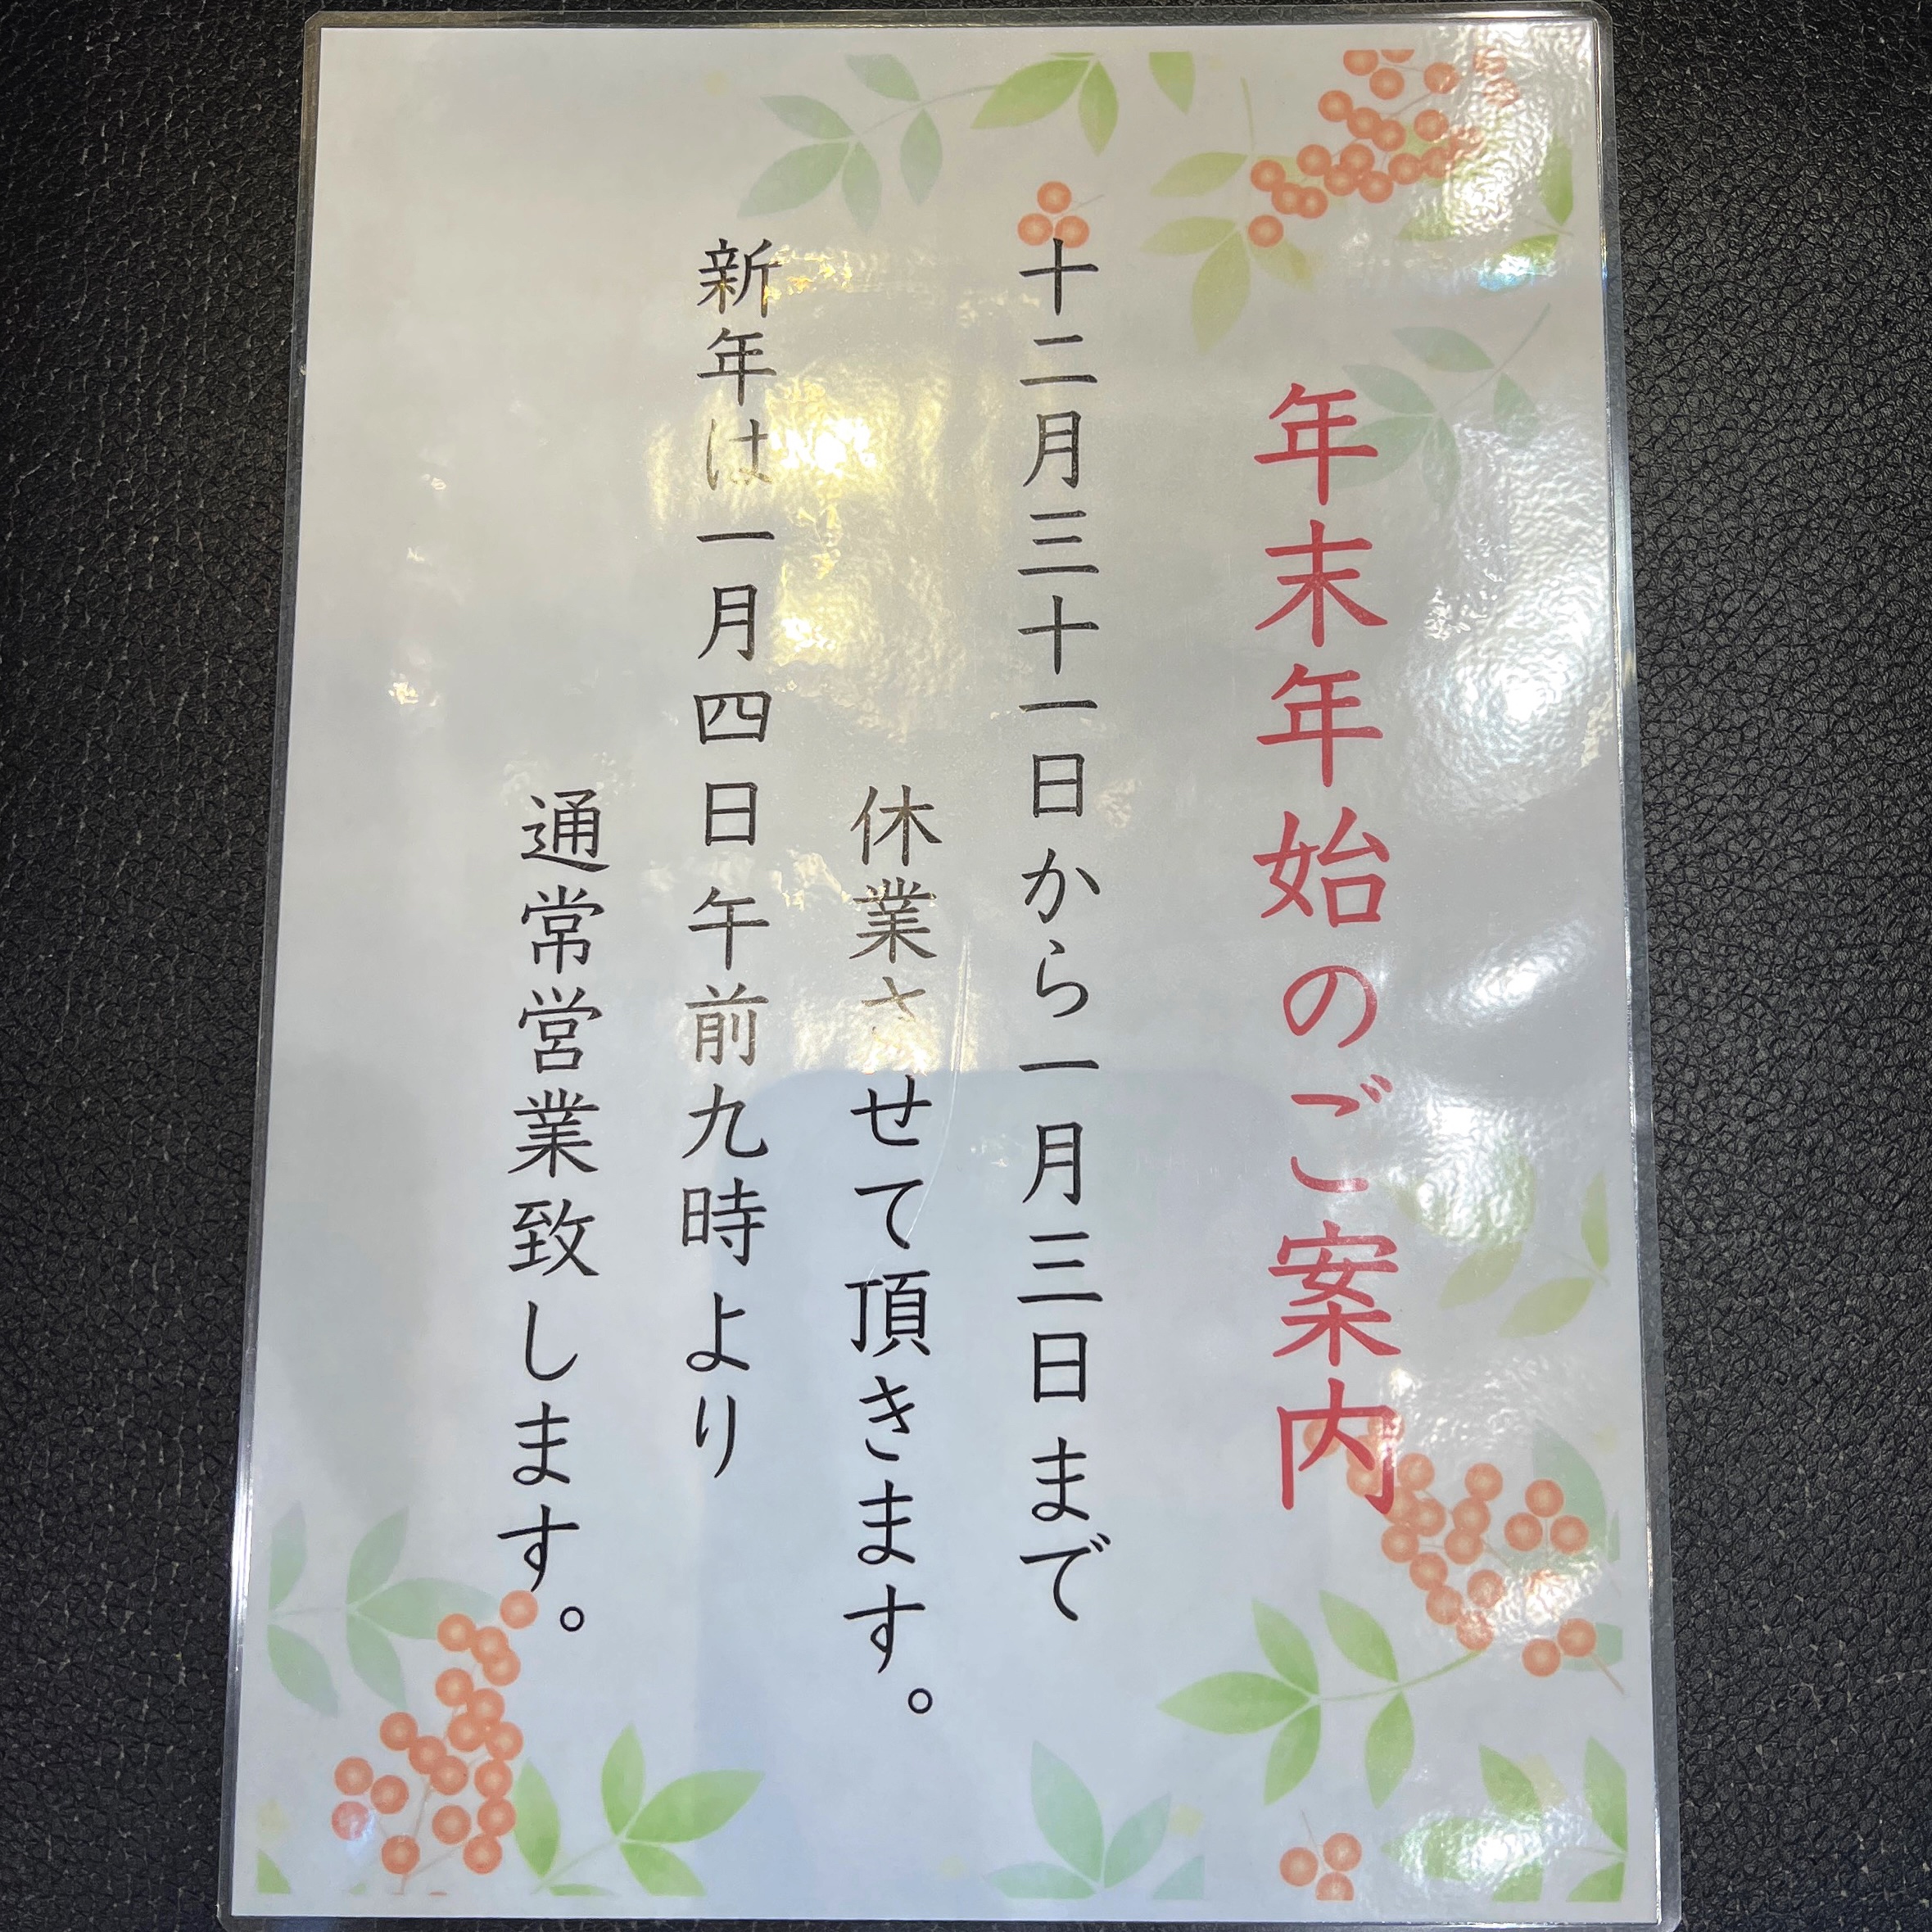 年末年始のご案内
十二月三十一日から一月三日まで
休業させて頂きます。
新年は一月四日午前九時より
通常営業致します。